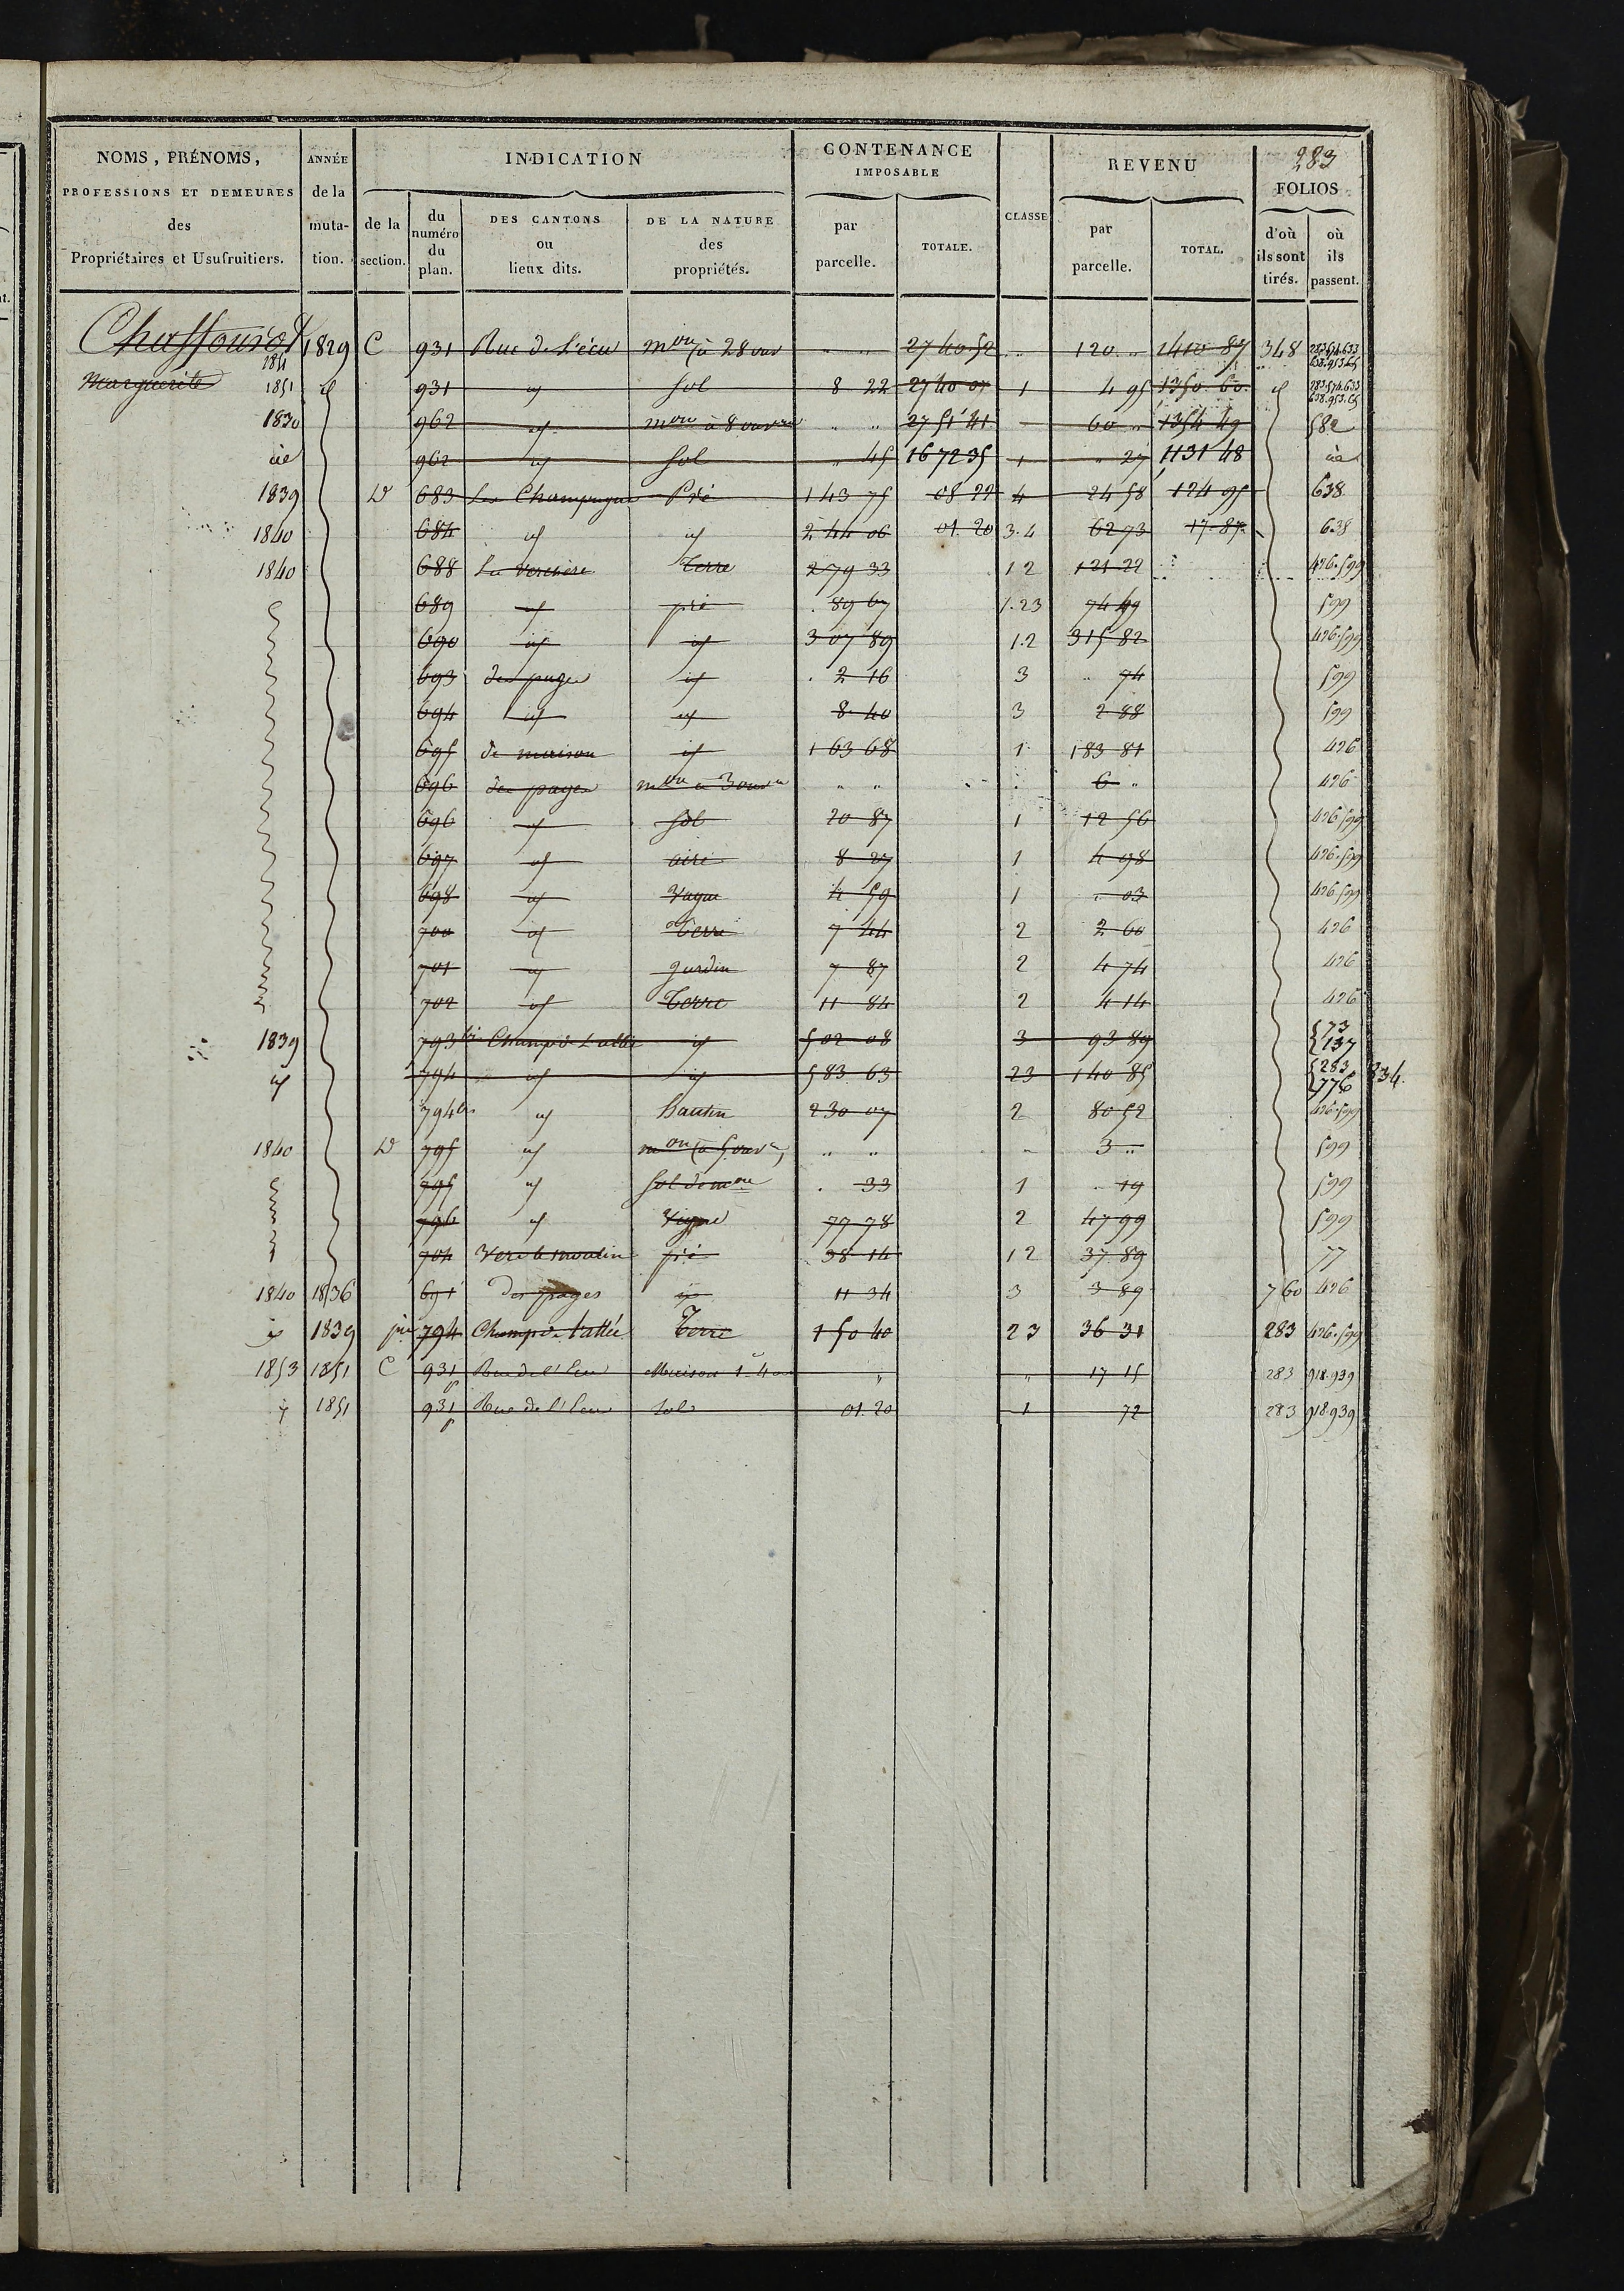 283
NOMS, PRÉNOMS, PROFESSIONS ET DEMEURES des Propriétaires et Usufruitiers.
ANNÉE de la muta-tion.
INDICATION
de la section.
du numéro du plan.
DES CANTONS ou lieux dits.
DE LA NATURE des propriétés.
CONTENANCE IMPOSABLE
par parcelle.
TOTALE.
CLASSE
REVENU
par parcelle.
TOTAL.
FOLIOS
d'où ils sont tirés.
où ils passent.
Chaffouriot 1851 1829 C 931 Rue de l'écu mon à 28 ouv " " 27 40 52 " 120 " 1410 87 348
Marguerite 1851 id 931 id sol 8 22 27 40 07 1 4 95 1350 60 id
1830 962 id mon à 8 ouv " " 27 51 41 60 " 1354 49 582
id 962 id Sol " 45 16 72 35 1 " 27 1131 48 id
1839 D 683 Les Champagne Pré 1 43 75 08 22 4 24 58 124 95 638
1840 684 id id 2 44 06 01 20 3.4 62 73 17 87 638
1840 688 La Verchère Terre 2 79 33 12 121 22 426.599
689 id pré 89 67 1.23 74 49 599
690 id id 3 07 89 1.2 315 82 426.599
693 des pages id 2 16 3 " 74 599
694 id id 8 40 3 2 88 599
695 de maison id 1 63 68 1 183 81 426
696 des pages mon à 3 ouv " " 6 " 426
696 id Sol 20 87 1 12 56 426.599
697 id aire 8 27 1 4 98 426.599
698 id Vague 4 59 1 " 03 426.599
700 id Terre 7 44 2 2 60 426
701 id jardin 7 87 2 4 74 426
702 id Terre 11 84 2 4 14 426
1839 793 bis Champ de l'allée id 5 02 08 3 93 89 73 137
id 794 id id 5 83 63 23 140 85 283 776 834.
794 bis id hautin 2 30 07 2 80 52 426.599
1840 D 795 id mon (à 5 ouv) " " 3 " 599
795 id sol de mon 33 1 19 599
796 id Vigne 77 78 2 47 99 599
704 Vers le moulin pré 38 14 12 37 89 77
1840 1836 691 des pages id 11 34 3 3 89 760 426
id 1839 pie 794 Champ de l'allée Terre 1 50 40 23 36 31 283 426.599
1853 1851 C 931 p Rue de l'Ecu Maison " " 17 15 283 918.939
id 1851 931 p Rue de l'Ecu sol 01 20 1 72 283 918.939